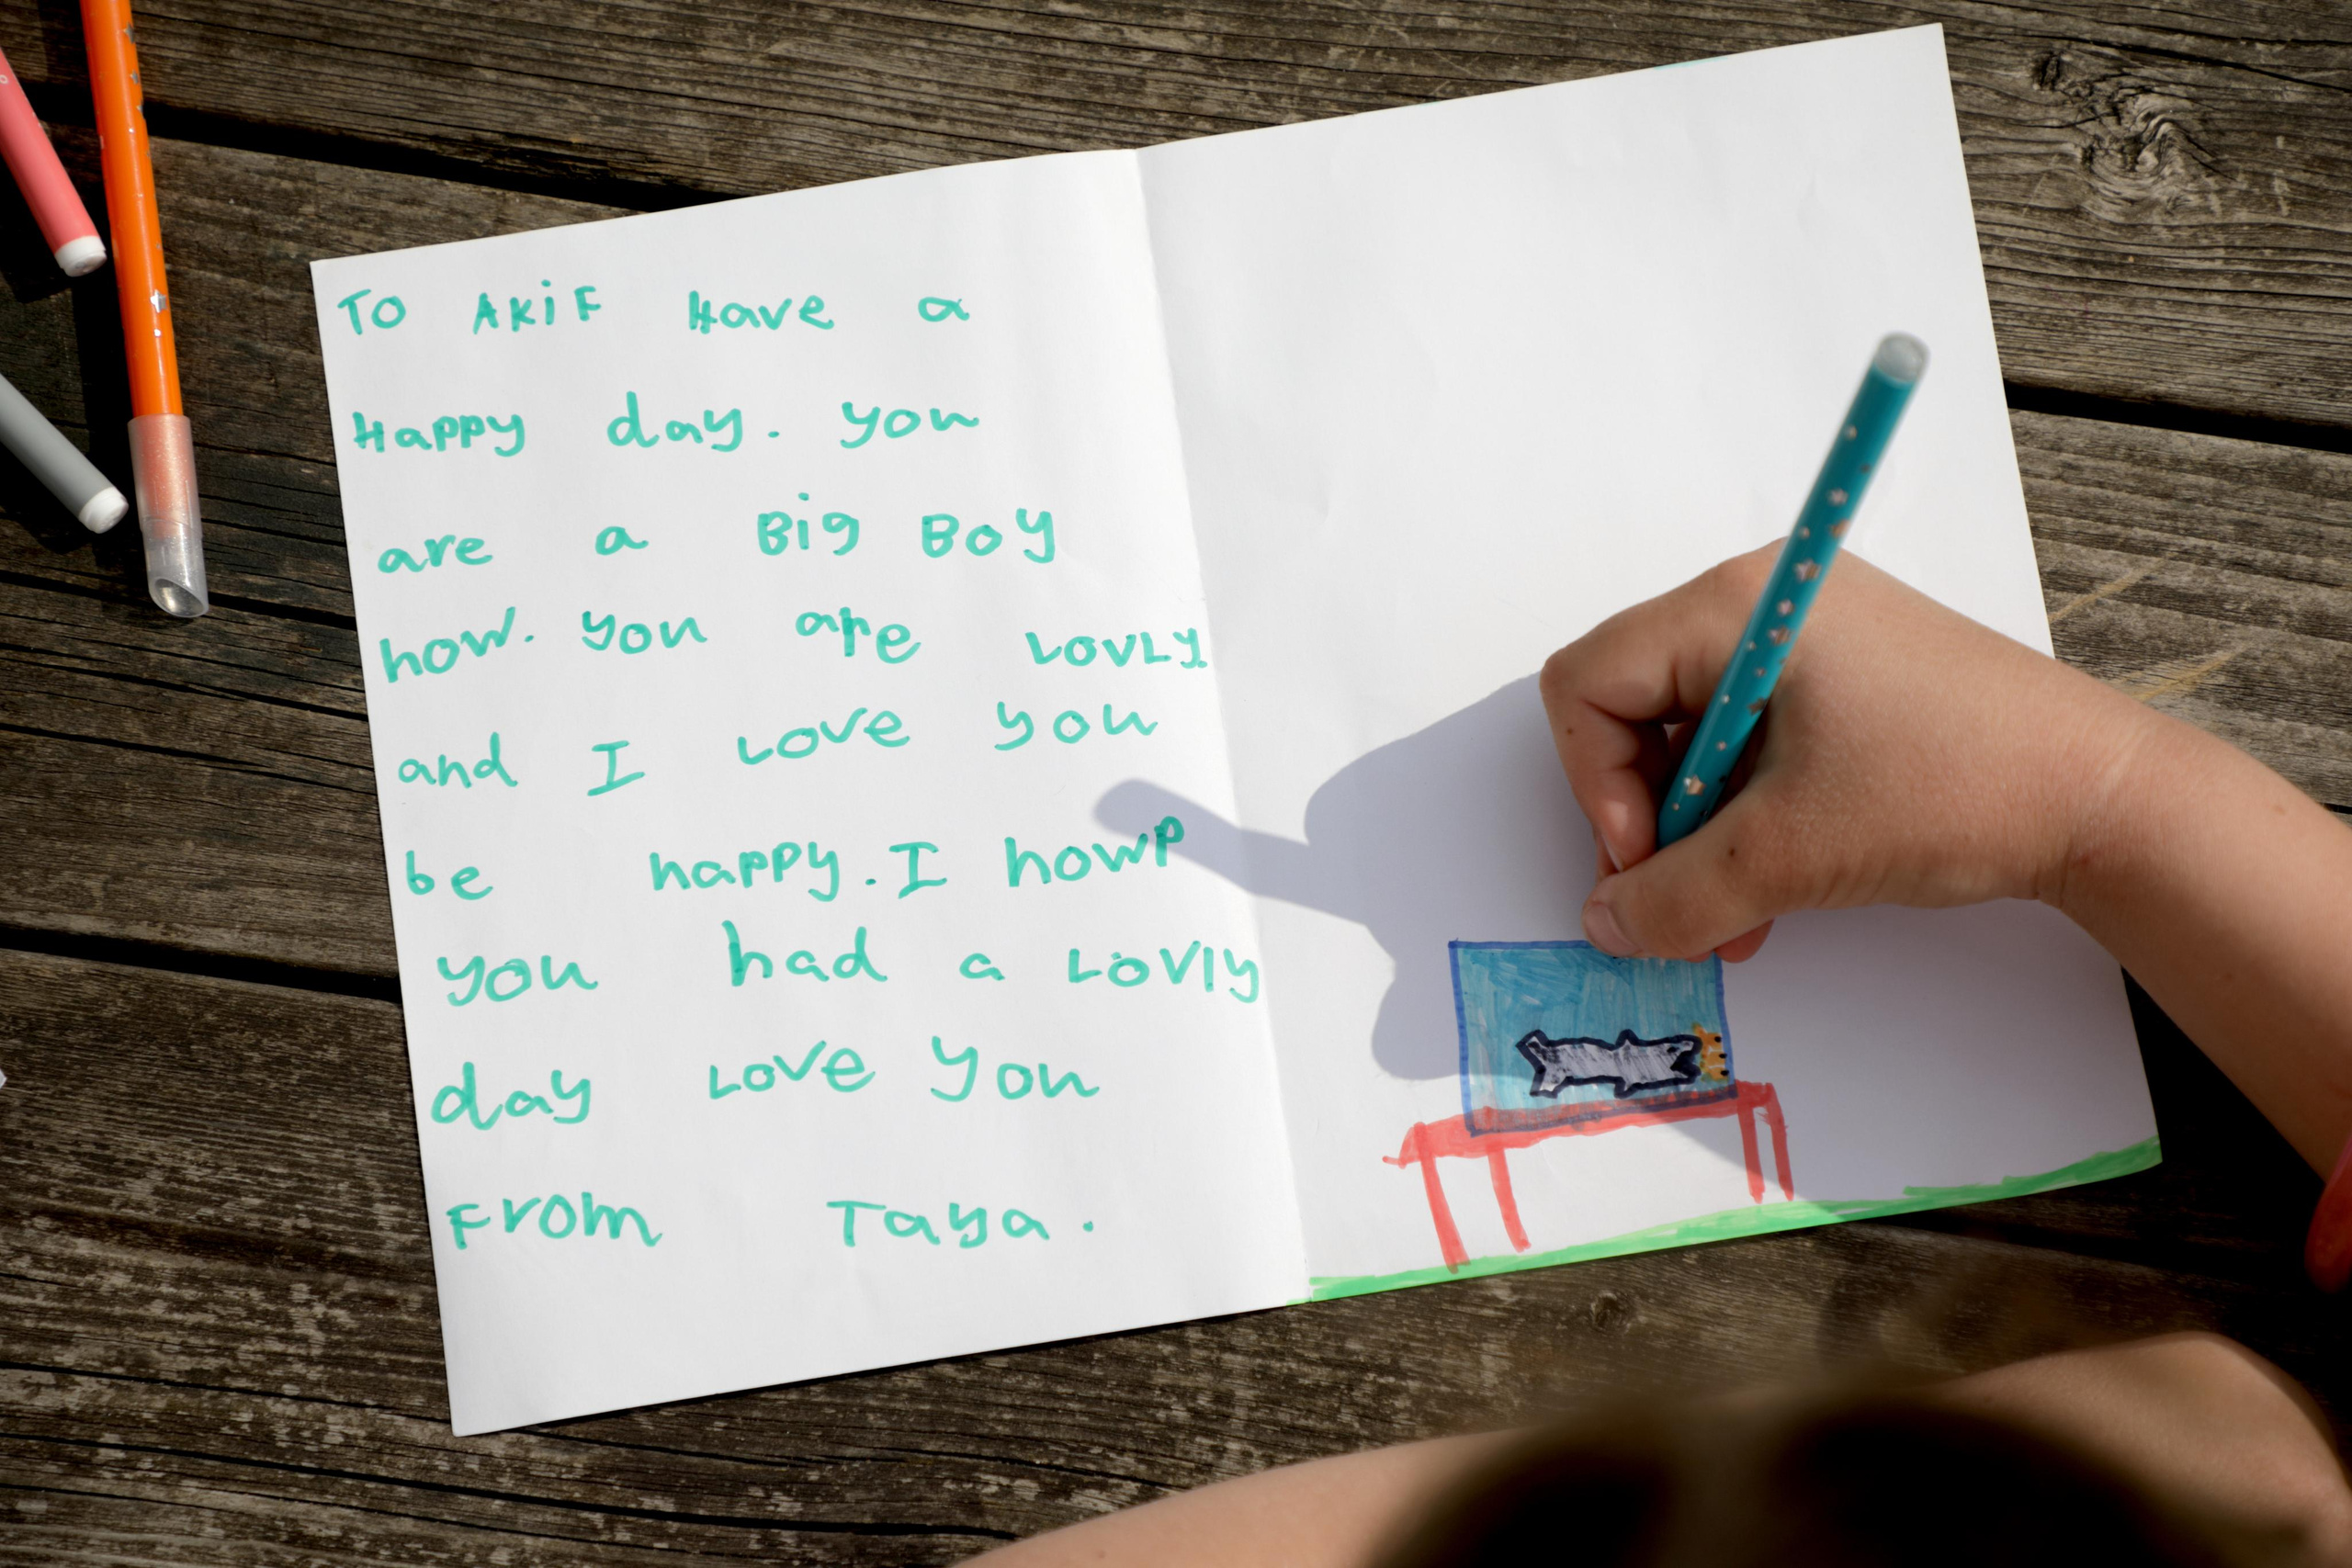 TO AKiF Have a
Happy day. you
are a Big Boy
how. you are LOVLY.
and I Love you
be happy. I howp
you had a Lovly
day Love you
From Taya.